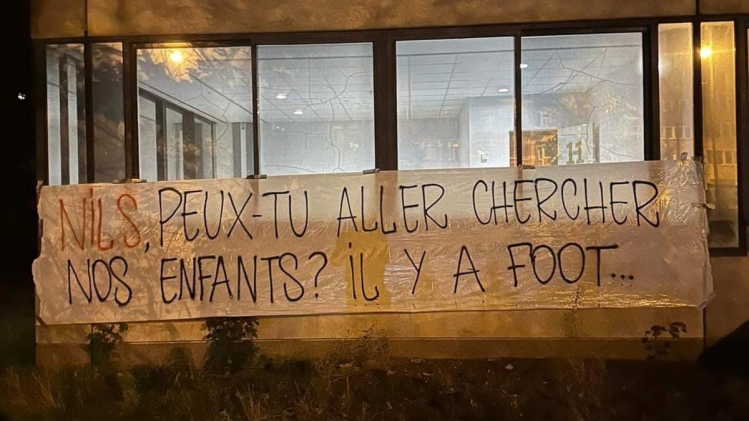 NiLS, PEUX-TU ALLER CHERCHER
NOS ENFANTS? iL Y A FOOT...
11